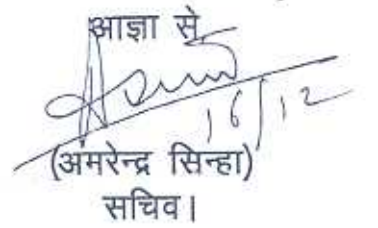 आज्ञा से,
16/12
(अमरेन्द्र सिन्हा)
सचिव।